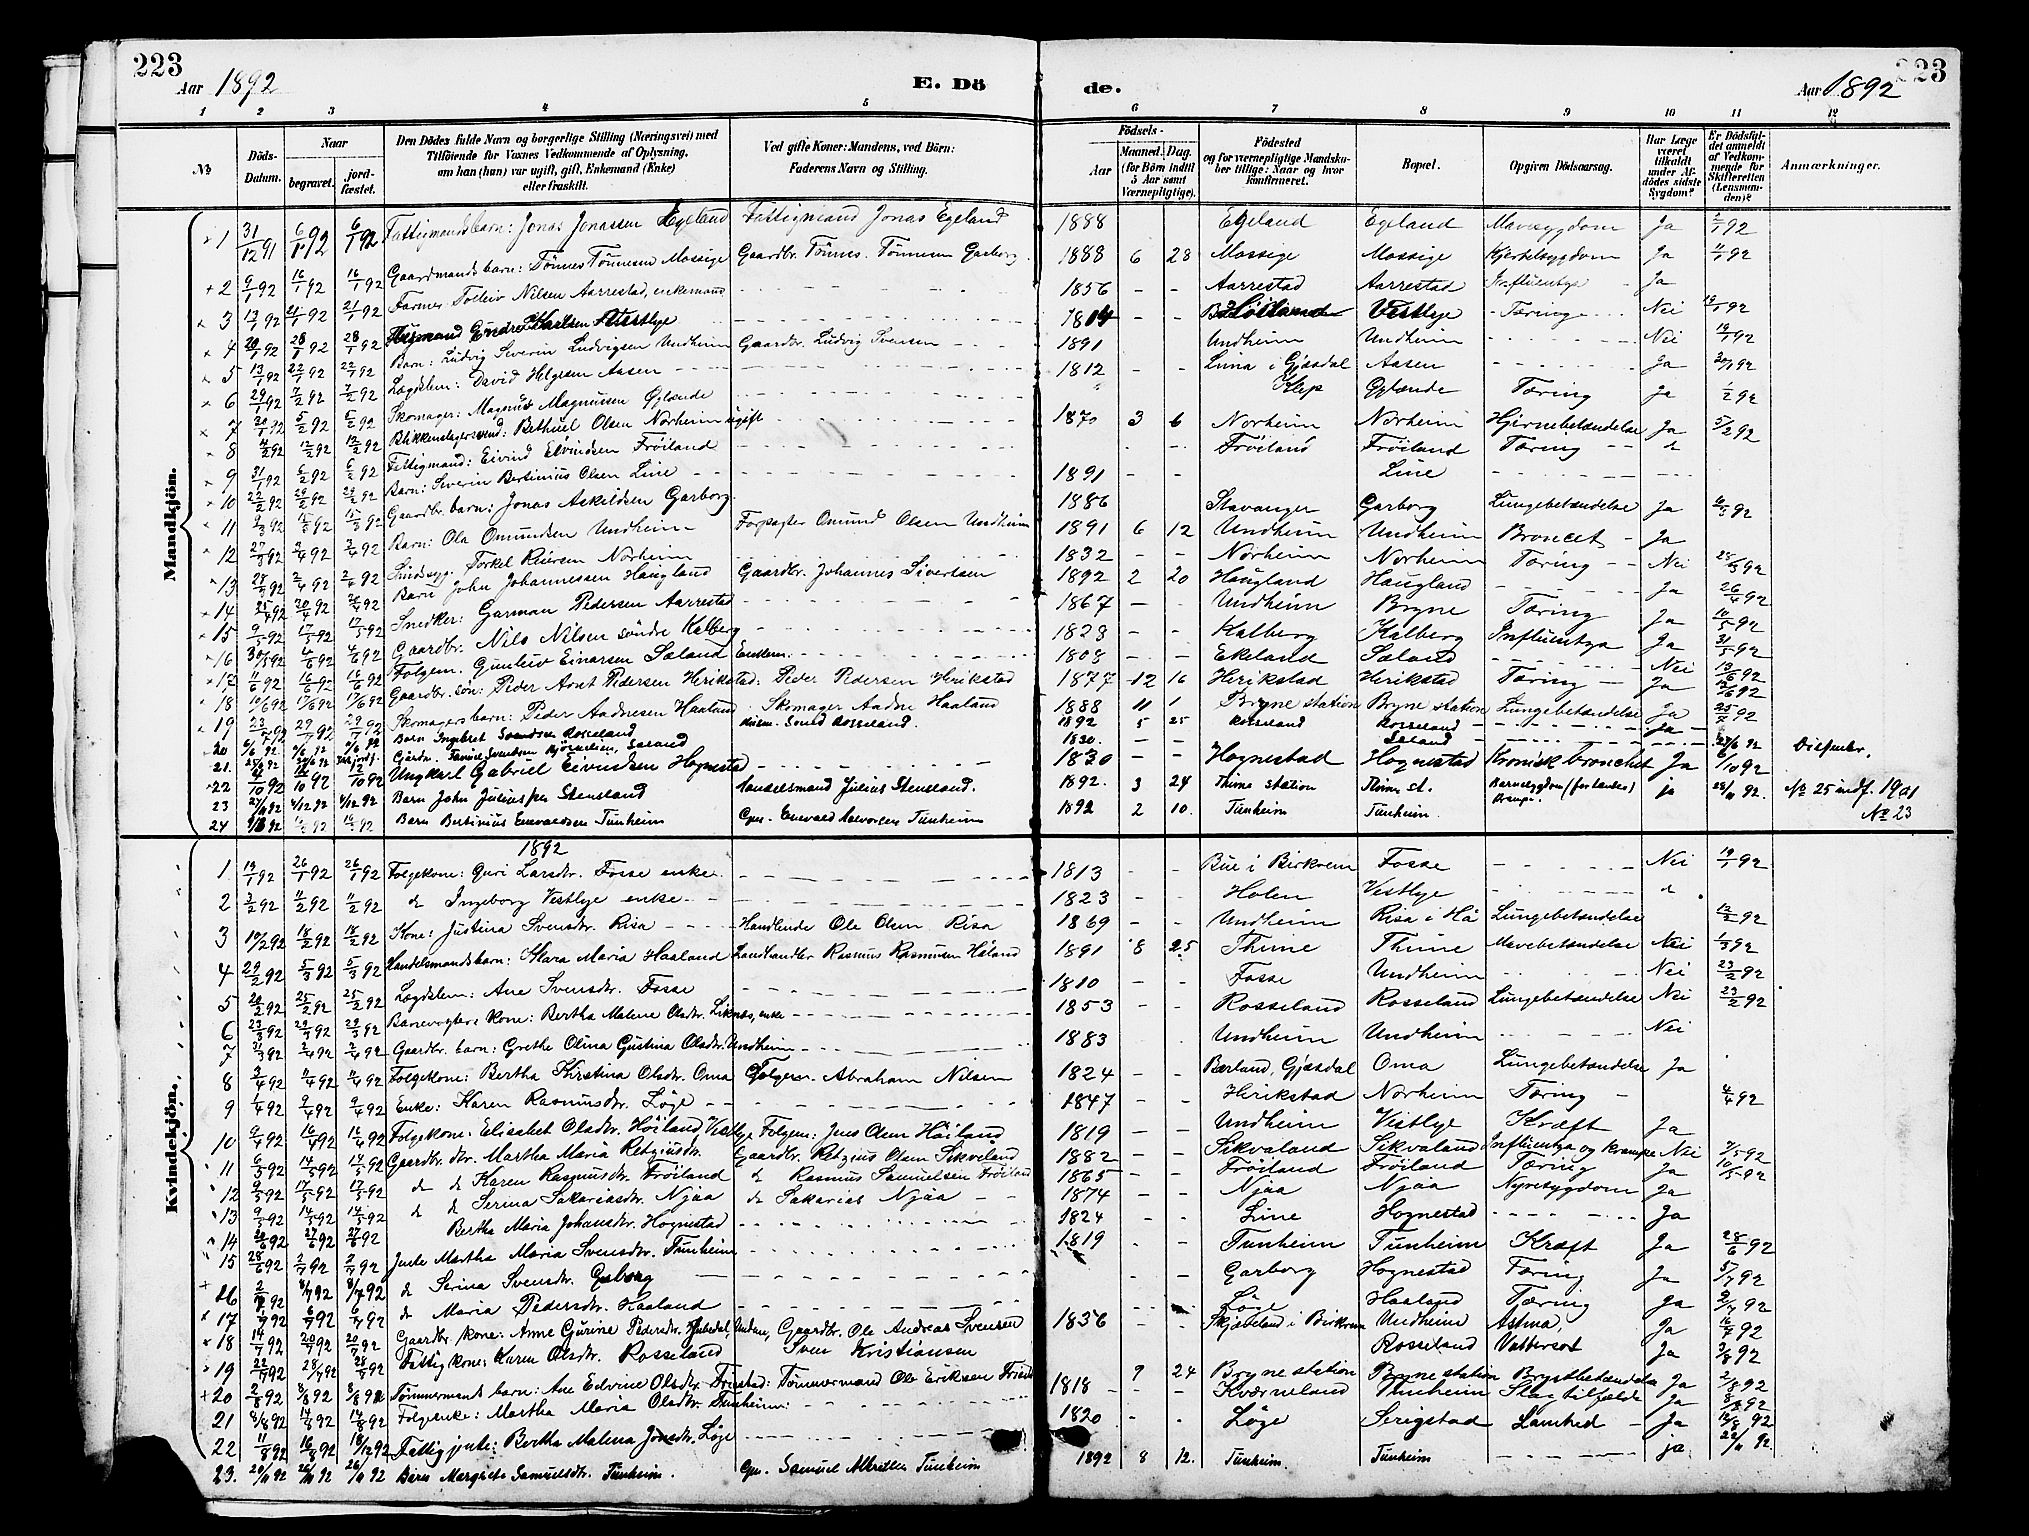 223
Aar 1892
E. Dö
de.
223
Aar 1892
1 2 3 4 5 6 7 8 9 10 11 12
No
Döds-Datum.
Naar
begravet.
jordfæstet.
Den Dödes fulde Navn og borgerlige Stilling (Næringsvei) med
Tilföiende for Voxnes Vedkommende af Oplysning,
om han (hun) var ugift, gift, Enkemand (Enke)
eller fraskilt.
Ved gifte Koner: Mandens, ved Börn:
Faderens Navn og Stilling.
Födsels-
Aar
Maaned. Dag.
(for Börn indtil
5 Aar samt
Værnepligtige).
Födested
og for værnepligtige Mandskaber tillige: Naar og hvor
konfirmeret.
Bopæl.
Opgiven Dödsaarsag.
Har Læge
været
tilkaldt
under Afdödes sidste
Sygdom?
Er Dödsfaldet anmeldt
af Vedkommende for
Skifteretten
(Lensmanden)?
Anmærkninger.
Mandkjön.
1 31/12 91 6/1 92 6/1 92 Fattigmandsbarn: Jonas Jonassen Egeland Fattigmand Jonas Egeland 1888 Egeland Egeland Mavesygdom Ja 2/1 92
2 9/1 92 16/1 92 16/1 92 Gaardmands barn: Tönnes Tönnesen Mossige Gaardbr. Tönnes Tönnesen Garborg 1888 6 28 Mossige Mossige Kjertelsygdom Ja 11/1 92
3 13/1 92 21/1 92 21/1 92 Farmer Tolleiv Nilsen Aarrestad, enkemand 1856 - - Aarrestad Aarrestad Influentya Ja
4 20/1 92 28/1 92 28/1 92 Husmand Endre Karlsen Vestlye Vestlye Tæring Nei 19/1 92
5 13/1 92 22/1 92 22/1 92 Barn: Ludvig Severin Ludvigsen Undheim Gaardbr. Ludvig Svensen 1891 Undheim Undheim Nei 19/1 92
6 29/1 92 7/2 92 7/2 92 Lægdslem: David Helgesen Aasen 1812 - - Lima i Gjæsdal Aasen Ja 30/1 92
7 20/1 92 5/2 92 5/2 92 Skomager: Magnus Magnussen Öglænde Klep Öglænde Tæring Ja 1/2 92
8 4/2 92 12/2 92 12/2 92 Blikkenslagersvend: Bethuel Olsen Norheim ugift 1870 3 6 Norheim Norheim Hjernebetændelse Ja 5/2 92
9 31/1 92 6/2 92 6/2 92 Fattigmand: Eivind Eivindsen Fröiland Fröiland Fröiland Tæring d
10 22/2 92 29/2 92 29/2 92 Barn: Severin Bertinius Olsen Line 1891 Line
11 9/3 92 15/3 92 15/3 92 Gaardbr. barn: Jonas Askildsen Garborg 1886 Stavanger Garborg Lungebetændelse Ja 10/3 92
12 27/3 92 2/4 92 2/4 92 Barn: Ola Omundsen Undheim Forpagter Omund Olsen Undheim 1891 6 12 Undheim Undheim Broncet Ja
13 28/3 92 2/4 92 2/4 92 Sindsyg. Torkel Reiersen Norheim 1832 - - Norheim Norheim Tæring Nei
14 30/4 92 Barn John Johannessen Haugland Gaardbr. Johannes Sivertsen 1892 2 20 Haugland Haugland Ja 26/4 92
15 9/5 92 17/5 92 17/5 92 Snedker: Garman Pedersen Aarrestad 1867 - Undheim Bryne Tæring Ja 10/5 92
16 30/5 92 4/6 92 4/6 92 Gaardbr. Nils Nilsen söndre Kalberg 1828 - - Kalberg Kalberg Influentya Ja 31/5 92
17 11/6 92 16/6 92 16/6 92 Folgem. Gunleiv Einarsen Sæland Enkem. 1808 - - Ekeland Sæland Nei 13/6 92
18 10/6 92 17/6 92 17/6 92 Gaardbr. sön: Peder Aont Pedersen Herikstad: Peder Pedersen Herikstad 1877 12 16 Herikstad Herikstad Tæring Ja
19 23/7 92 29/7 92 29/7 92 Skomagersbarn: Peder Aadnesen Haaland Skomager Aadne Haaland 1888 11 1 Bryne station Bryne station Lungebetændelse Ja 25/7 92
20 Barn Ingebret Svendsen Rosseland Svend Rosseland. 1892 5 25 Rosseland Rosseland Ja
21. Sæland 1830. Sæland Dispenser.
22 4/10 92 Ungkarl Gabriel Eivindsen Hognestad 1830 - - Hognestad Hognestad Kronisk bronchet Ja 6/10 92
23 27/11 92 4/12 92 4/12 92 Barn John Juliussen Stensland Handelsmand Julius Stensland. 1892. 3 24 Thime station Thime st. ja 28/11 92. No 25 indf. 1901
24 Barn Bertinius Enevaldsen Tunheim 1892 2 10. Tunheim Tunheim. No 23
Kvindekjön.
1892
1 13/1 92 26/1 92 26/1 92 Folgekone: Guri Larsdtr. Fosse enke 1813 - - Bue i Birkrem Fosse Nei 19/1 92
2 3/2 92 11/2 92 11/2 92 d Ingeborg Vestlye enke 1823 - - Holen Vestlye d
3 10/2 92 18/2 92 18/2 92 Kone: Justina Svensdtr. Risa Handlende Ole Olsen Risa 1869 - - Undheim Risa i Hå Lungebetændelse 12/2 92
4 29/2 92 5/3 92 5/3 92 Handelsmands barn: Klara Maria Haaland Landhandler Rasmus Rasmussen Håland 1891 8 25 Thime Thime Mavebetændelse Nei 1/3 92
5 20/2 92 25/2 92 25/2 92 Lægdslem: Ane Svensdtr. Fosse 1810 - - Fosse Undheim Nei 23/2 92
6 23/3 92 29/3 92 29/3 92 Banevogters kone: Bertha Malene Olsdtr. Liknæs, enke 1853 - - Rosseland Rosseland Lungebetændelse Nei 23/2 92
7 31/3 92 2/4 92 2/4 92 Gaardbr. barn: Grethe Olina Gustina Olsdtr. Undheim 1883 Undheim Undheim Nei
8 3/4 92 11/4 92 11/4 92 Folgekone: Bertha Kirstina Olsdtr. Oma Folgem. Abraham Nilsen 1824 - - Bærland, Gjæsdal Oma Lungebetændelse Ja
9 1/4 92 9/4 92 9/4 92 Enke: Karen Rasmusdtr. Löge 1847 - - Herikstad Norheim Tæring 4/4 92
10 9/4 92 16/4 92 16/4 92 Folgekone: Elisabet Olsdtr. Höiland Vestlye Folgem: Jens Olsen Höiland 1819 - - Undheim Vestlye Kræft Ja
11 6/5 92 14/5 92 14/5 92 Gaardbr. dtr. Martha Maria Retziusdtr. Gaardbr. Retzius Olsen Sikveland 1882 - - Sikvaland Sikvaland Influentya og krampe Nei 7/5 92
12 9/5 92 17/5 92 17/5 92 d d Karen Rasmusdtr. Fröiland d Rasmus Samuelsen Fröiland 1865 - - Fröiland Fröiland Tæring Ja 10/5 92
13 9/5 92 14/5 92 14/5 92 d d Serina Sakariasdtr. Njåa d Sakarias Njåa 1874 - - Njåa Njåa Nyresygdom Ja
14 27/6 92 27/6 92 Bertha Maria Johansdtr. Hognestad 1824 - - Line Hognestad Ja
15 28/6 92 2/7 92 2/7 92 Jente Martha Maria Svensdtr. Tunheim 1819 - - Tunheim Tunheim Kræft Ja 28/6 92
16 8/7 92 8/7 92 d Serina Svensdtr. Garborg Garborg Hognestad Tæring Ja 5/7 92
17 6/7 92 6/7 92 d Maria Pedersdtr. Haaland Löge Haaland Tæring Ja 2/7 92
18 14/7 92 20/7 92 20/7 92 Gaardbr. kone: Anne Gurine Pedersdtr. Gaardbr. Ole Andreas Svensen 1836 - - Skjæveland i Birkrem Undheim Astma Ja 16/7 92
19 22/7 92 28/7 92 28/7 92 Fattig kone: Karen Olsdtr. Rosseland Sven Kristiansen Rosseland Vattersot Ja 3/8 92
20 2/8 92 8/8 92 8/8 92 Tömmermands barn: Ane Edvine Olsdtr. Friestad: Tömmermand Ole Eriksen Friestad 9 24 Bryne station Bryne station Brystbetændelse Ja 2/8 92
21 8/8 92 14/8 92 14/8 92 Folgeenke: Martha Maria Olsdtr. Tunheim: 1818 - - Kværneland Tunheim Slagtilfælde Ja 8/8 92
22 11/8 92 16/8 92 Fattig jente: Bertha Malena Jonsdtr. Löge 1820 - - Löge Serigstad Lamhed Ja
23. 20/11 92 26/11 92 26/11 92 Barn Margrete Samuelsdtr. Tunheim. Samuel Albretsen Tunheim 1892 8 12. Tunheim. Tunheim ja 22/11 92.